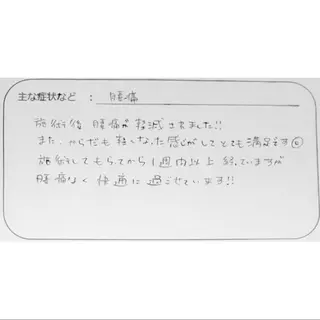 主な症状など : 腰痛
施術後 腰痛が軽減されました!!
また、からだも軽くなった感じがしてとても満足です☺
施術してもらってから1週間以上経っていますが
腰痛なく快適に過ごせています!!